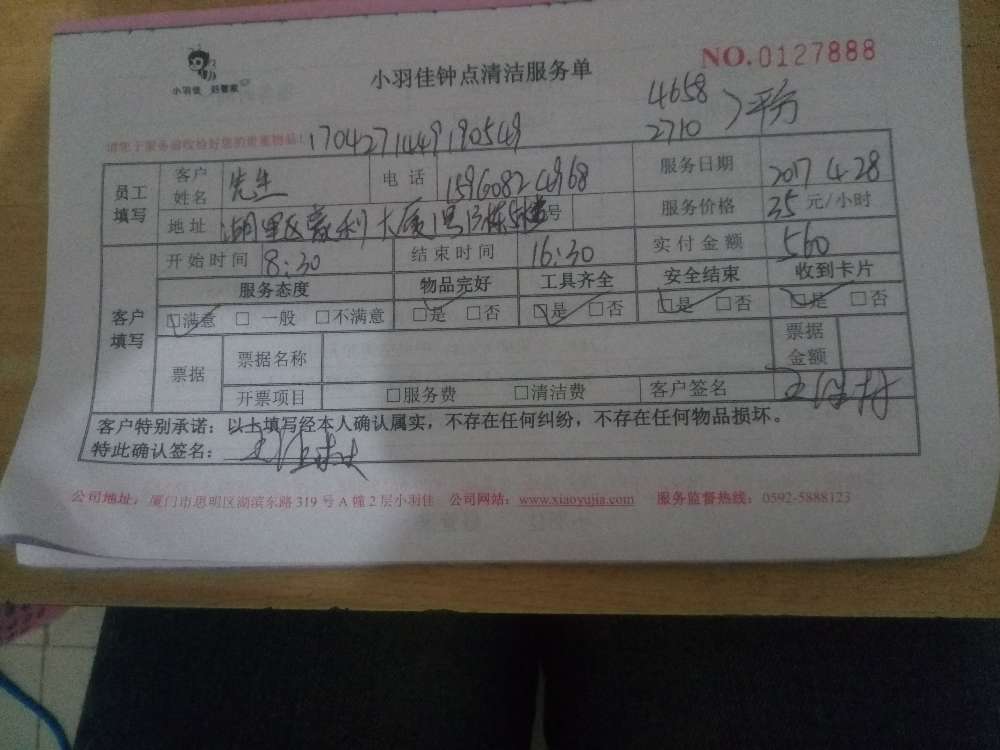 小羽佳 好管家
小羽佳钟点清洁服务单
NO.0127888
4658
2710 平分
请您于服务前收检好您的贵重物品!
1704271449190549
员工填写 客户姓名 先生 电话 15960824968 服务日期 2017 4.28
地址 湖里区豪利大厦 号 服务价格 35 元/小时
客户填写 开始时间 8:30 结束时间 16:30 实付金额 560
服务态度 物品完好 工具齐全 安全结束 收到卡片
□满意 □一般 □不满意 □是 □否 □是 □否 □是 □否 □是 □否
票据 票据名称 票据金额
开票项目 □服务费 □清洁费 客户签名
客户特别承诺：以上填写经本人确认属实，不存在任何纠纷，不存在任何物品损坏。
特此确认签名：
公司地址：厦门市思明区湖滨东路 319 号 A 幢 2 层小羽佳 公司网站：www.xiaoyujia.com 服务监督热线：0592-5888123